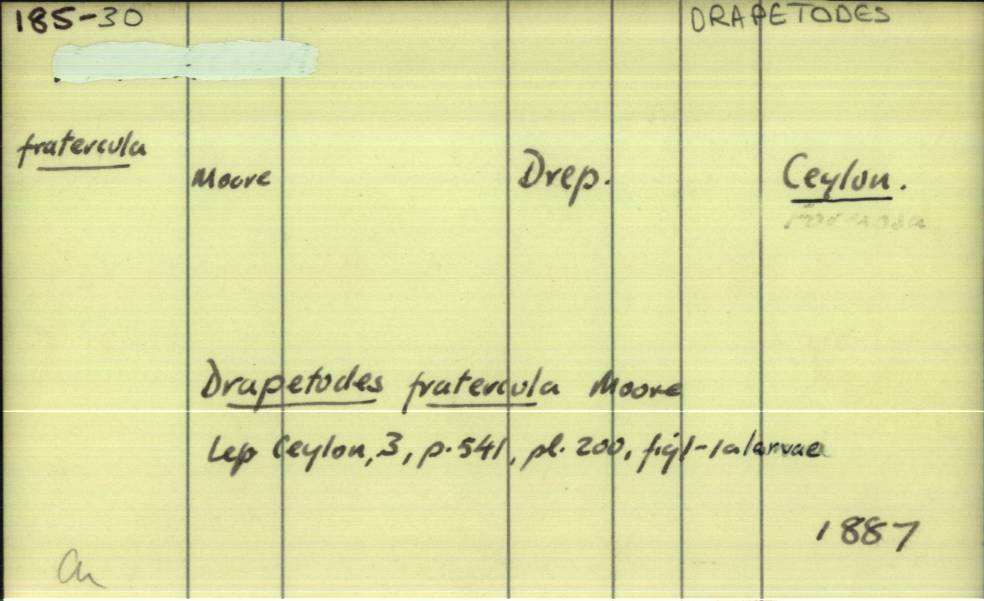 185-30 DRAPETODES
fratercula
Moore Drep. Ceylon.
Drapetodes fratercula Moore
Lep Ceylon, 3, p.541, pl. 200, fig 1-1a larvae
1887